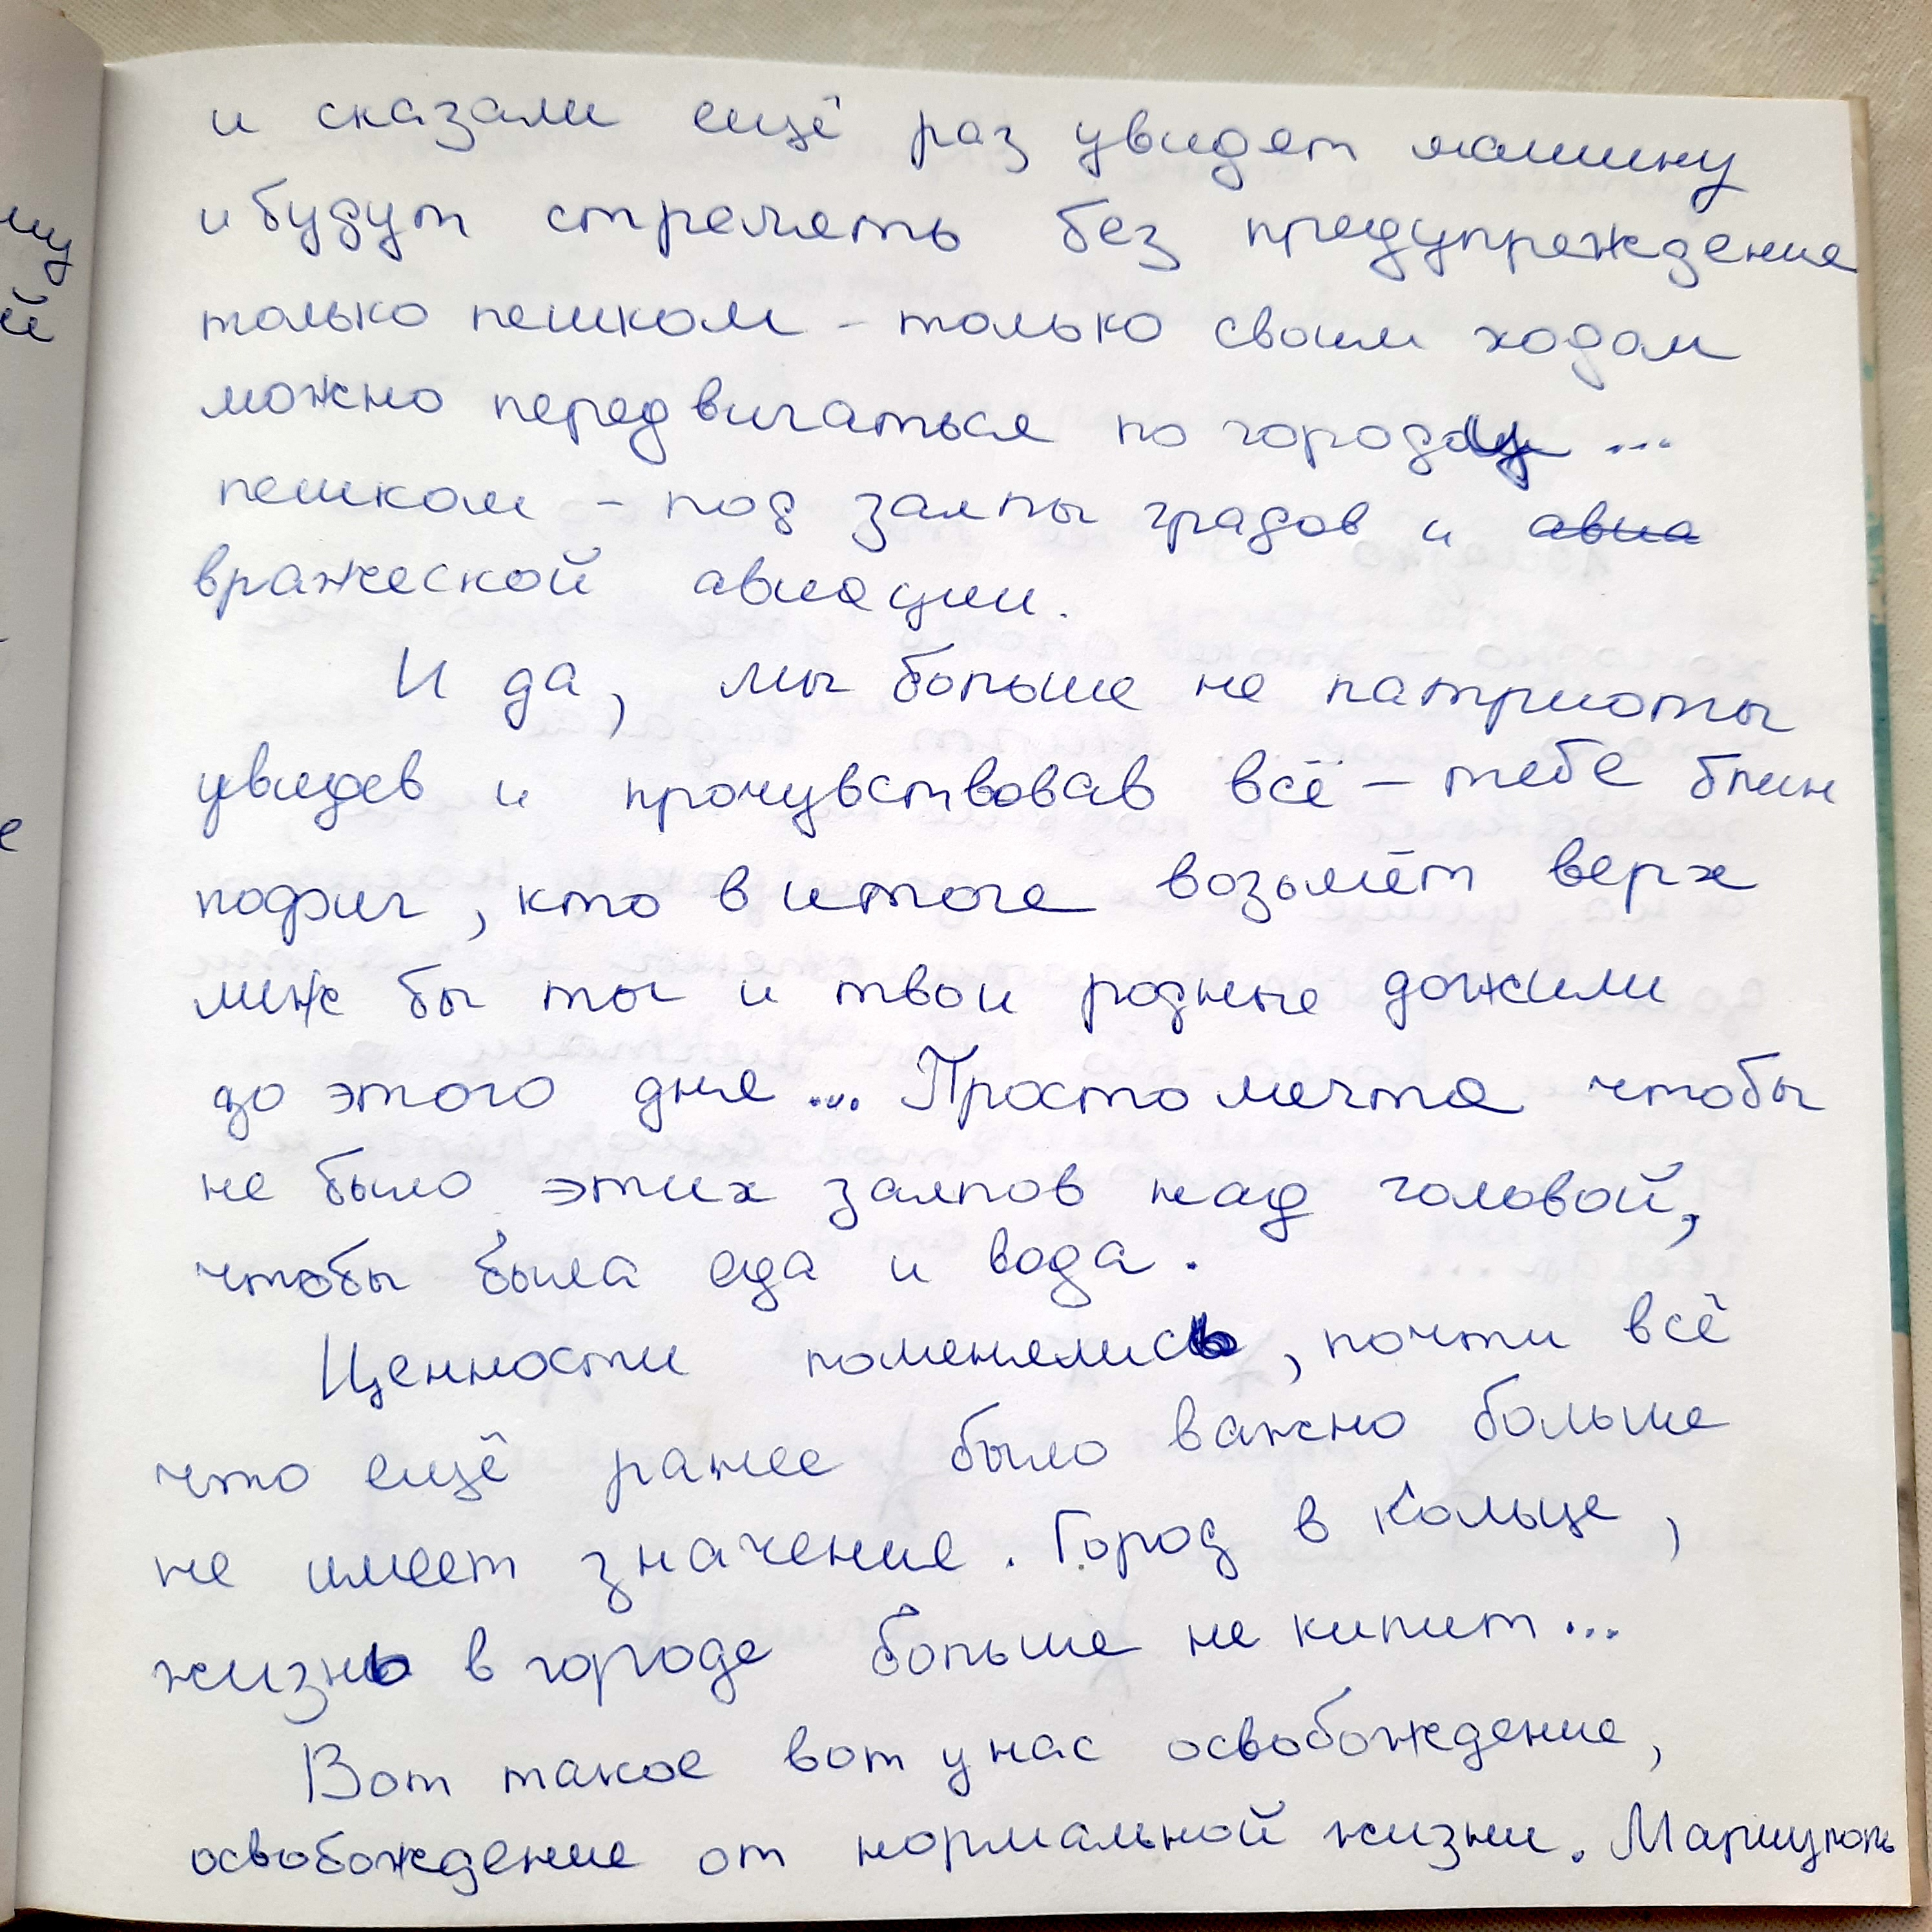 и сказали ещё раз увидят машину
и будут стрелять без предупреждения
только пешком - только своим ходом
можно передвигаться по городу ...
пешком - под залпы градов и авиа
вражеской авиации.
И да, мы больше не патриоты
увидев и прочувствовав всё - тебе блин
пофиг, кто в итоге возьмёт верх
лиж бы ты и твои родные дожили
до этого дня ... Просто мечта чтобы
не было этих залпов над головой,
чтобы была еда и вода.
Ценности поменялись, почти всё
что ещё ранее было важно больше
не имеет значение. Город в кольце,
жизнь в городе больше не кипит ...
Вот такое вот у нас освобождение,
освобождение от нормальной жизни. Мариуполь
му
й
е